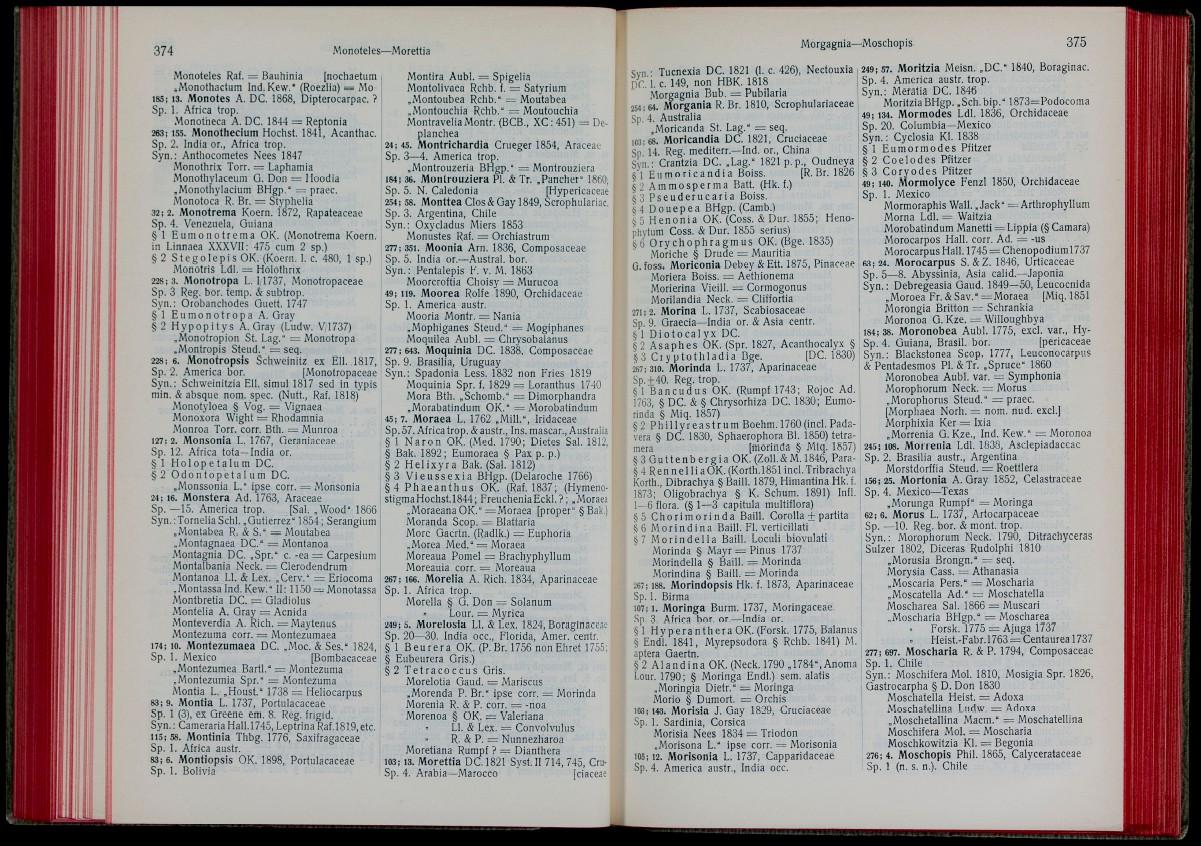 374
Monoteles—Morettia
Monoteles Raf. = Bauhinia [nochaetum
„Monothactum Ind. Kew.“ (Roezlia) = Mo-
185; 13. Monotes A. DC. 1868, Dipterocarpac. ?
Sp. 1. Africa trop.
Monotineca A. DC. 1844 = Reptonia
263; 155. Monothecium Hochst. 1841, Acanthac.
Sp. 2. India or., Africa trop.
Syn.: Anthocometes Nees 1847
Monothrix Torr. = Laphamia
Monothylaceum G. Don = Hoodia
„Monothylacium BHgp.“ = praec.
Monotoca R. Br. = Styphelia
32; 2. Monotrema Koern. 1872, Rapateaceae
Sp. 4. Venezuela, Guiana
§ 1 Eumonotrema OK. (Monotrema Koern.
in Linnaea XXXVII: 475 cum 2 sp.)
§ 2 Stegolepis OK. (Koern. l. c. 480, 1 sp.)
Monotris Ldl. = Holothrix
228; 3. Monotropa L. 1737, Monotropaceae
Sp. 3 Reg. bor. temp. & subtrop.
Syn.: Orobanchodes Guett. 1747
§ 1 Eumonotropa A. Gray
§ 2 Hypopitys A. Gray (Ludw. 1737)
„Monotropion St. Lag.“ = Monotropa
„Montropis Steud.“ = seq.
228; 6. Monotropsis Schweinitz ex Ell. 1817,
Sp. 2. America bor. [Monotropaceae
Syn.: Schweinitzia Ell. simul 1817 sed in typis
min. & absque nom. spec. (Nutt., Raf. 1818)
Monotyloea § Vog. = Vignaea
Monoxora Wight = Rhodamnia
Monroa Torr. corr. Bth. = Munroa
127; 2. Monsonia L. 1767, Geraniaceae
Sp. 12. Africa tota—India or.
§ 1 Holopetalum DC.
§ 2 Odontopetalum DC.
„Monssonia L.“ ipse corr. = Monsonia
24; 16. Monstera Ad. 1763, Araceae
Sp. —15. America trop. [Sal. „Wood“ 1866
Syn.: Tornelia Schl. „Gutierrez“ 1854; Serangium
„Montabea R. & S.“ = Moutabea
„Montagnaea DC.“ = Montanoa
Montagnia DC. „Spr.“ c. -ea = Carpesium
Montalbania Neck. = Clerodendrum
Montanoa Ll. & Lex. „Cerv.“ = Eriocoma
„Montassa Ind. Kew.“ II: 1150 = Monotassa
Montbretia DC. = Gladiolus
Montelia A. Gray = Acnida
Monteverdia A. Rich. = Maytenus
Montezuma corr. = Montezumaea
174; 10. Montezumaea DC. „Moc. & Ses.“ 1824,
Sp. 1. Mexico [Bombacaceae
„Montezumea Bartl.“ = Montezuma
„Montezumia Spr.“ = Montezuma
Montia L. „Houst.“ 1738 = Heliocarpus
83; 9. Montia L. 1737, Portulacaceae
Sp. 1 (3), ex Greene em. 8. Reg. frigid.
Syn.: Cameraria Hall. 1745, Leptrina Raf. 1819, etc.
115; 58. Montinia Thbg. 1776, Saxifragaceae
Sp. 1. Africa austr.
83; 6. Montiopsis OK. 1898, Portulacaceae
Sp. 1. Bolivia
Montira Aubl. = Spigelia
Montolivaea Rchb. f. = Satyrium
„Montoubea Rchb.“ = Moutabea
„Montouchia Rchb.“ = Moutouchia
Montravelia Montr. (BCB., XC: 451) = De-
planchea
24; 45. Montrichardia Crueger 1854, Araceae
Sp. 3—4. America trop.
„Montrouzeria BHgp.“ = Montrouziera
184; 36. Montrouziera Pl. & Tr. „Pancher“ 1860,
Sp. 5. N. Caledonia [Hypericaceae
254; 58. Monttea Clos & Gay 1849, Scrophulariac.
Sp. 3. Argentina, Chile
Syn.: Oxycladus Miers 1853
Monustes Raf. = Orchiastrum
277; 351. Moonia Arn. 1836, Composaceae
Sp. 5. India or.—Austral. bor.
Syn.: Pentalepis F. v. M. 1863
Moorcroftia Choisy = Murucoa
49; 119. Moorea Rolfe 1890, Orchidaceae
Sp. 1. America austr.
Mooria Montr. = Nania
„Mophiganes Steud.“ = Mogiphanes
Moquilea Aubl. = Chrysobalanus
277; 643. Moquinia DC. 1838, Composaceae
Sp. 9. Brasilia, Uruguay
Syn.: Spadonia Less. 1832 non Fries 1819
Moquinia Spr. f. 1829 = Loranthus 1740
Mora Bth. „Schomb.“ = Dimorphandra
„Morabatindum OK.“ = Morobatindum
45; 7. Moraea L. 1762 „Mill.“, Iridaceae
Sp. 57. Africa trop. & austr., Ins. mascar., Australia
§ 1 Naron OK. (Med. 1790; Dietes Sal. 1812,
§ Bak. 1892; Eumoraea § Pax p. p.)
§ 2 Helixyra Bak. (Sal. 1812)
§ 3 Vieussexia BHgp. (Delaroche 1766)
§ 4 Phaeanthus OK. (Raf. 1837; (Hymeno-
stigma Hochst. 1844; Freuchenia Eckl. ?; „Moraea
„MoraeanaOK.“ = Moraea [proper“ § Bak.)
Moranda Scop. = Blattaria
Morc Gacrtn. (Radlk.) = Euphoria
„Morea Med.“ = Moraea
Moreaua Pomel = Brachyphyllum
Moreauia corr. = Moreaua
267; 166. Morelia A. Rich. 1834, Aparinaceae
Sp. 1. Africa trop.
Morella § G. Don = Solanum
„ Lour. = Myrica
249; 5. Morelosia Ll. & Lex. 1824, Boraginaceae
Sp. 20—30. India occ., Florida, Amer. centr.
§ 1 Beurera OK. (P. Br. 1756 non Ehret 1755;
§ Eubeurera Gris.)
§ 2 Tetracoccus Gris.
Morelotia Gaud. = Mariscus
„Morenda P. Br.“ ipse corr. = Morinda
Morenia R. & P. corr. = -noa
Morenoa § OK. = Valeriana
„ Ll. & Lex. = Convolvulus
„ R. & P. = Nunnezharoa
Moretiana Rumpf ? = Dianthera
103; 13. Morettia DC. 1821 Syst. II 714, 745, Cru-
Sp. 4. Arabia—Marocco [ciaceae
Morgagnia—Moschopis
375
Syn.: Tucnexia DC. 1821 (l. c. 426), Nectouxia
DC. l. c. 149, non HBK. 1818
Morgagnia Bub. = Pubilaria
254; 64. Morgania R. Br. 1810, Scrophulariaceae
Sp. 4. Australia
„Moricanda St. Lag.“ = seq.
103; 68. Moricandia DC. 1821, Cruciaceae
Sp. 14. Reg. mediterr.—Ind. or., China
Syn.: Crantzia DC. „Lag.“ 1821 p. p., Oudneya
§ 1 Eumoricandia Boiss. [R. Br. 1826
§ 2 Ammosperma Batt. (Hk. f.)
§ 3 Pseuderucaria Boiss.
§ 4 Douepea BHgp. (Camb.)
§ 5 Henonia OK. (Coss. & Dur. 1855; Heno-
phytum Coss. & Dur. 1855 serius)
§ 6 Orychophragmus OK. (Bge. 1835)
Moriche § Drude = Mauritia
G. foss. Moriconia Debey & Ett. 1875, Pinaceae
Moriera Boiss. = Aethionema
Morierina Vieill. = Cormogonus
Morilandia Neck. = Cliffortia
271; 2. Morina L. 1737, Scabiosaceae
Sp. 9. Graecia—India or. & Asia centr.
§ 1 Diotocalyx DC.
§ 2 Asaphes OK. (Spr. 1827, Acanthocalyx §
§ 3 Cryptothladia Bge. [DC. 1830)
267; 310. Morinda L. 1737, Aparinaceae
Sp. ±40. Reg. trop.
§ 1 Bancudus OK. (Rumpf 1743; Rojoc Ad.
1763, § DC. & § Chrysorhiza DC. 1830; Eumo-
rinda § Miq. 1857)
§ 2 Phillyreastrum Boehm. 1760 (incl. Pada-
vera § DC. 1830, Sphaerophora Bl. 1850) tetra-
mera [morinda § Miq. 1857)
§ 3 Guttenbergia OK. (Zoll. & M. 1846, Para-
§ 4 Rennellia OK. (Korth. 1851 incl. Tribrachya
Korth., Dibrachya § Baill. 1879, Himantina Hk. f.
1873; Oligobrachya § K. Schum. 1891) Infl.
1—6 flora. (§ 1—3 capitula multiflora)
§ 5 Chorimorinda Baill. Corolla ± partita
§ 6 Morindina Baill. Fl. verticillati
§ 7 Morindella Baill. Loculi biovulati
Morinda § Mayr = Pinus 1737
Morindella § Baill. = Morinda
Morindina § Baill. = Morinda
267; 188. Morindopsis Hk. f. 1873, Aparinaceae
Sp. 1. Birma
107; 1. Moringa Burm. 1737, Moringaceae
Sp. 3. Africa bor. or.—India or.
§ 1 Hyperanthera OK. (Forsk. 1775, Balanus
§ Endl. 1841, Myrepsodora § Rchb. 1841) M.
aptera Gaertn.
§ 2 Alandina OK. (Neck. 1790 „1784“, Anoma
Lour. 1790; § Moringa Endl.) sem. alatis
„Moringia Dietr.“ = Moringa
Morio § Dumort. = Orchis
103; 143. Morisia J. Gay 1829, Cruciaceae
Sp. 1. Sardinia, Corsica
Morisia Nees 1834 = Triodon
„Morisona L.“ ipse corr. = Morisonia
105; 12. Morisonia L. 1737, Capparidaceae
Sp. 4. America austr., India occ.
249; 57. Moritzia Meisn. „DC.“ 1840, Boraginac.
Sp. 4. America austr. trop.
Syn.: Meratia DC. 1846
Moritzia BHgp. „Sch. bip.“ 1873 = Podocoma
49; 134. Mormodes Ldl. 1836, Orchidaceae
Sp. 20. Columbia—Mexico
Syn.: Cyclosia Kl. 1838
§ 1 Eumormodes Pfitzer
§ 2 Coelodes Pfitzer
§ 3 Coryodes Pfitzer
49; 140. Mormolyce Fenzl 1850, Orchidaceae
Sp. 1. Mexico
Mormoraphis Wall. „Jack“ = Arthrophyllum
Morna Ldl. = Waitzia
Morobatindum Manetti = Lippia (§ Camara)
Morocarpos Hall. corr. Ad. = -us
Morocarpus Hall. 1745 = Chenopodium 1737
63; 24. Morocarpus S. & Z. 1846, Urticaceae
Sp. 5—8. Abyssinia, Asia calid.—Japonia
Syn.: Debregeasia Gaud. 1849—50, Leucocnida
„Moroea Fr. & Sav.“ = Moraea [Miq. 1851
Morongia Britton = Schrankia
Moronoa G. Kze. = Willoughbya
184; 38. Moronobea Aubl. 1775, excl. var., Hy-
Sp. 4. Guiana, Brasil. bor. [pericaceae
Syn.: Blackstonea Scop. 1777, Leuconocarpus
& Pentadesmos Pl. & Tr. „Spruce“ 1860
Moronobea Aubl. var. = Symphonia
Morophorum Neck. = Morus
„Morophorus Steud.“ = praec.
[Morphaea Norh. = nom. nud. excl.]
Morphixia Ker = Ixia
„Morrenia G. Kze., Ind. Kew.“ = Moronoa
245; 108. Morrenia Ldl. 1838, Asclepiadaceae
Sp. 2. Brasilia austr., Argentina
Morstdorffia Steud. = Roettlera
156; 25. Mortonia A. Gray 1852, Celastraceae
Sp. 4. Mexico—Texas
„Morunga Rumpf“ = Moringa
62; 6. Morus L. 1737, Artocarpaceae
Sp. —10. Reg. bor. & mont. trop.
Syn.: Morophorum Neck. 1790, Ditrachyceras
Sulzer 1802, Diceras Rudolphi 1810
„Morusia Brongn.“ = seq.
Morysia Cass. = Athanasia
„Moscaria Pers.“ = Moscharia
„Moscatella Ad.“ = Moschatella
Moscharea Sal. 1866 = Muscari
„Moscharia BHgp.“ = Moscharea
„ Forsk. 1775 = Ajuga 1737
„ Heist.-Fabr. 1763 = Centaurea 1737
277; 697. Moscharia R. & P. 1794, Composaceae
Sp. 1. Chile
Syn.: Moschifera Mol. 1810, Mosigia Spr. 1826,
Gastrocarpha § D. Don 1830
Moschatella Heist. = Adoxa
Moschatellina Ludw. = Adoxa
„Moschetallina Macm.“ = Moschatellina
Moschifera Mol. = Moscharia
Moschkowitzia Kl. = Begonia
276; 4. Moschopis Phil. 1865, Calycerataceae
Sp. 1 (n. s. n.). Chile